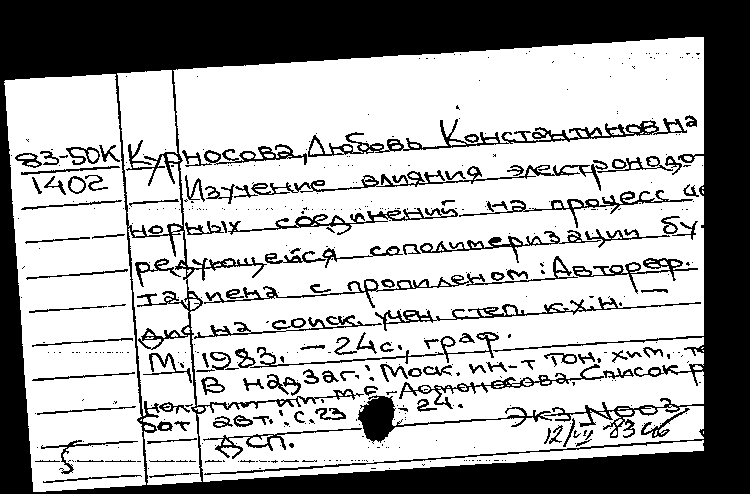 83-50К Курносова, Любовь Константиновна
1402 Изучение влияния электронодо-
норных соединений на процесс че-
редующейся сополимеризации бу-
тадиена с пропиленом: Автореф.
дис. на соиск. учен. степ. к.х.н. —
М., 1983. — 24с., граф.
В надзаг.: Моск. ин-т тон. хим. те
нологии им. М.В. Ломоносова, Список р
бот авт.: с. 23 - 24.
Экз №003
ДСП. 12/VII-83